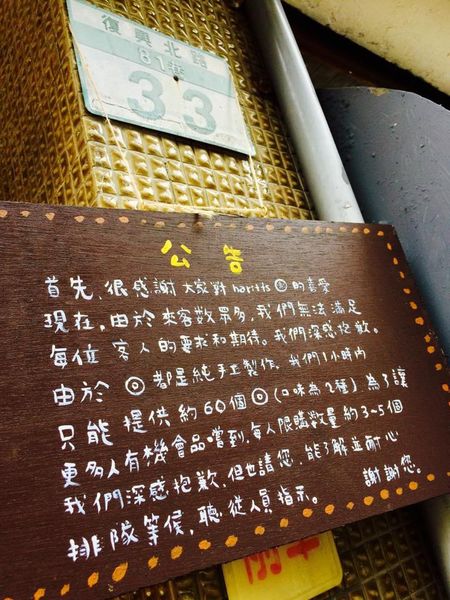 復興北路
81巷
33
公告
首先,很感謝大家對haritts◎的喜愛
現在,由於來客數眾多,我們無法滿足
每位客人的要求和期待。我們深感抱歉。
由於◎都是純手工製作。我們1小時內
只能提供約60個◎(口味為2種)為了讓
更多人有機會品嚐到,每人限購數量約3~5個
我們深感抱歉,但也請您,能了解並耐心
排隊等候,聽從人員指示。 謝謝您。